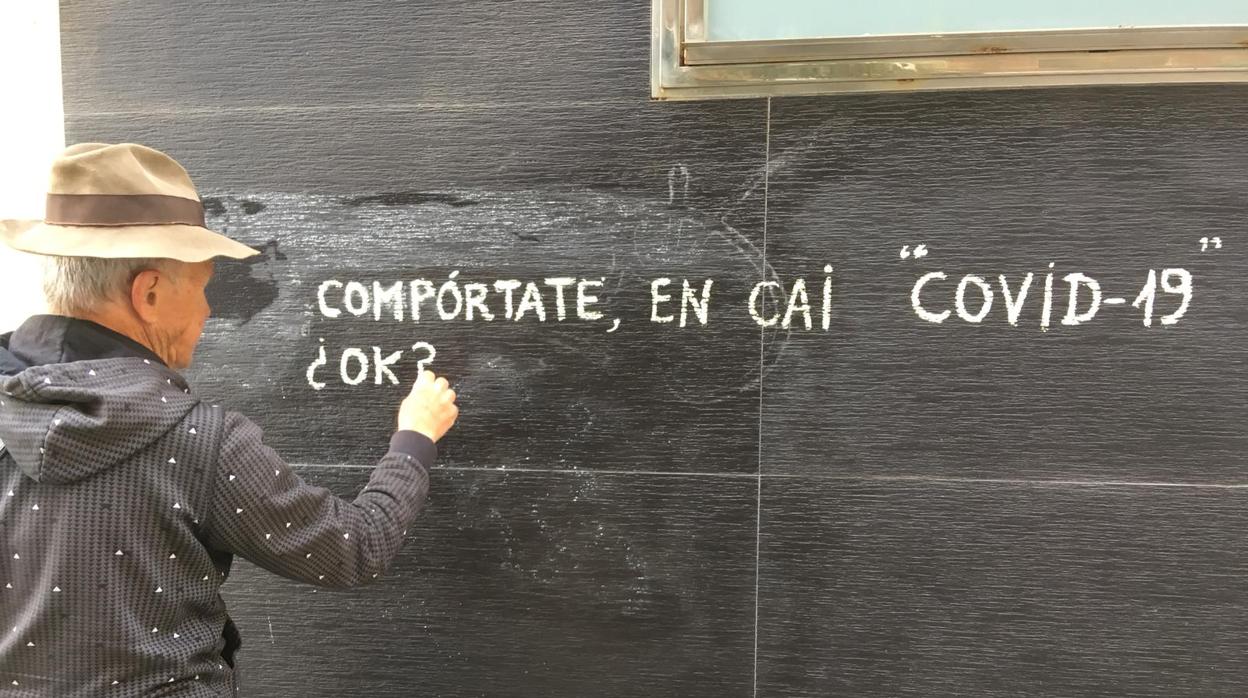 COMPÓRTATE, EN CAİ “COVİD-19”
¿OK?